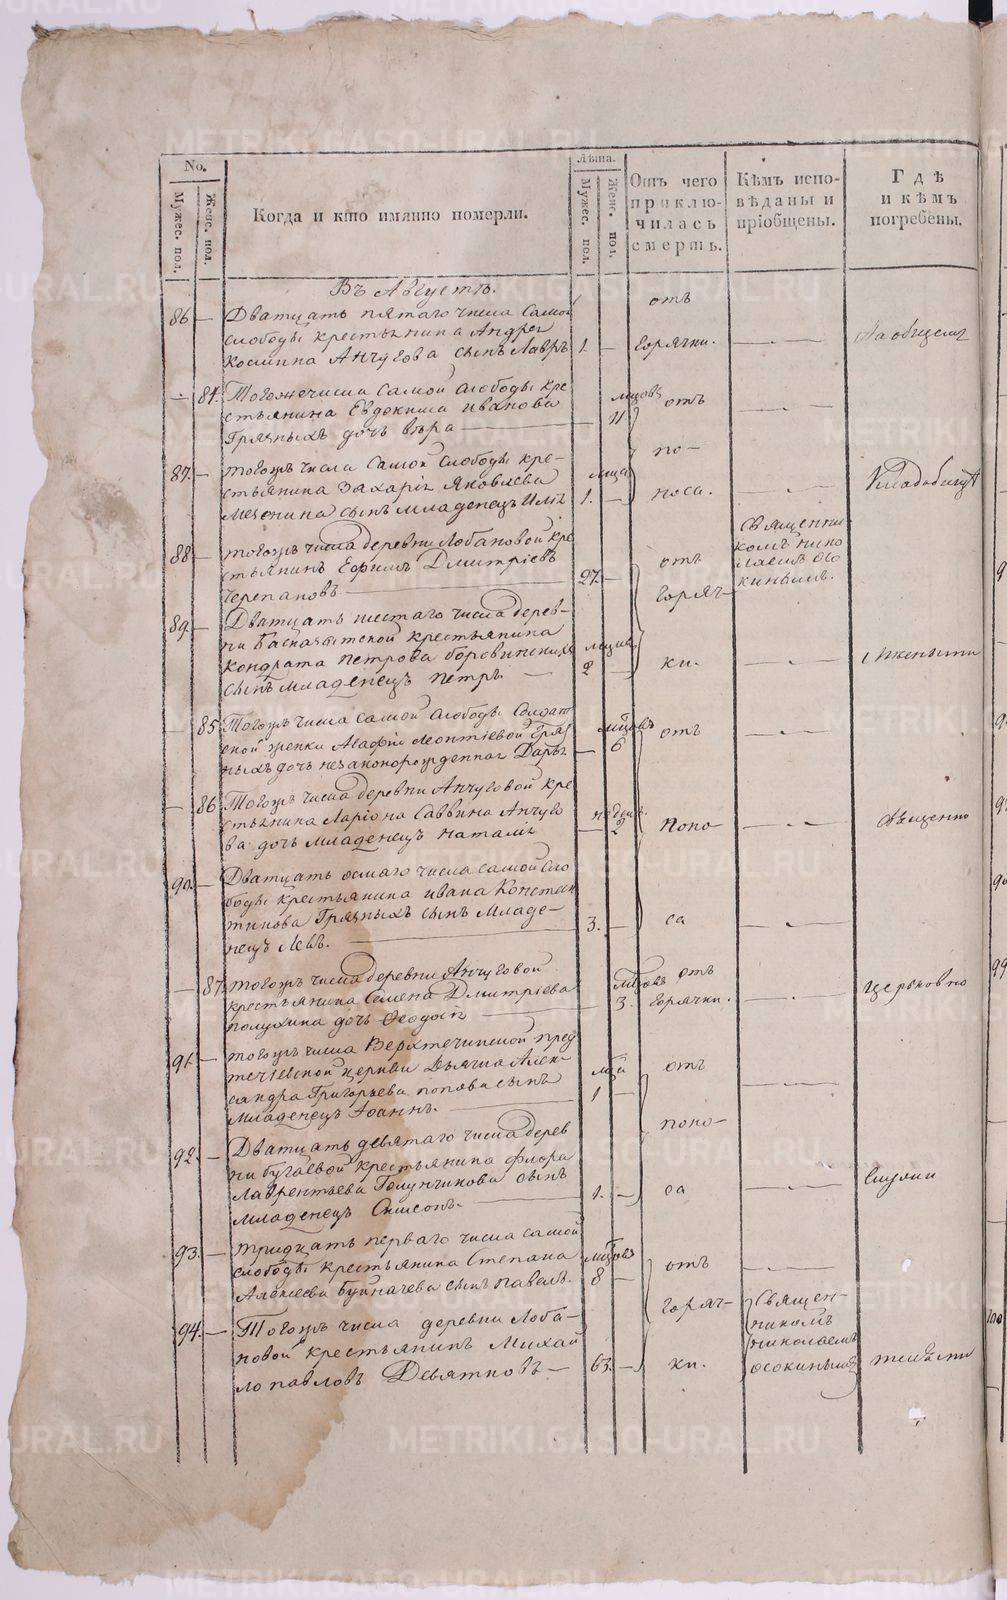 No.
Мужес. пол.
Женс. пол.
Когда и кто имянно померли.
Лѣта.
Мужес. пол.
Женс. пол.
Отъ чего приклю-
чилась
смерть.
Кѣмъ испо-
вѣданы и
пріобщены.
Гдѣ
и кѣмъ
погребены.
Въ Августѣ.
86 — Дватцать пятаго числа самой
слободы крестьянина Андрея
Космина Анчугова сынъ Лавръ 1. — отъ горячки. — На общемъ
— 84. Тогожъ числа самой слободы кре-
стьянина Евдокима Иванова
Грязныхъ дочь вѣра — мцовъ 11 отъ —
87. — тогожъ числа самой слободы кре-
стьянина Захарія Яковлева
сынъ младенецъ мца 1. — по-
носа. — кладбищѣ
88 — тогожъ числа деревни Лобановой кре
стьянинъ Ефимъ Дмитріевъ
Черепановъ. — 27. — отъ горяч- Священни
комъ Нико
лаемъ Осо
кинымъ.
89 — Дватцать шестаго числа дерев-
ни крестьянина
Кондрата Петрова
сынъ младенецъ Петръ. — 2 — ки. —
— 85 Тогожъ числа самой слободы Солдат
ской женки Агафіи Леонтіевой Гряз
ныхъ дочь незаконорожденная Дарья — мцовъ 6 отъ —
— 86 Тогожъ числа деревни Анчуговой кре
стьянина Ларіона Саввина Анчуго
ва дочь младенецъ Наталья — 2 поно —
90. — Дватцать осмаго числа самой сло
боды крестьянина Ивана Констан
тинова Грязныхъ сынъ младе-
нецъ Левъ. — 3. — са —
— 87. тогожъ числа деревни Анчуговой
крестьянина Семена Дмитріева
Полухина дочь Феодосія — мцовъ 3. отъ горячки. — церковно
91. — тогожъ числа Верхтечинской пред
течевской церкви дьячка Алек-
сандра Григорьева Попова сынъ
младенецъ Іоаннъ. — мца 1 — отъ —
92. — Дватцать девятаго числа дерев
ни Бугаевой крестьянина Флора
Лаврентьева Голунчикова сынъ
младенецъ Симеонъ. — 1. — поно-
са —
93. — тридцать перваго числа самой
слободы крестьянина Степана
Алексеева сынъ Павелъ. мцовъ 8 — отъ —
94. — Тогожъ числа деревни Лоба-
новой крестьянинъ Михай
ло Павловъ Девятковъ — 63. — горяч-
ки. Священ-
никомъ
Николаемъ
Осокинымъ